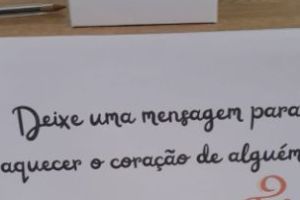 Deixe uma mensagem para
aquecer o coração de alguém